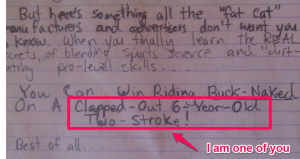 But here's something all the "fat cat"
manufacturers and advertisers don't want you
to know. When you finally learn the REAL
secrets, of blending sports science and "cutt-
ating pro-level skills....
You Can Win Riding Buck-Naked
On A Clapped-Out 6-Year-Old
Two-Stroke!
I am one of you
Best of all...